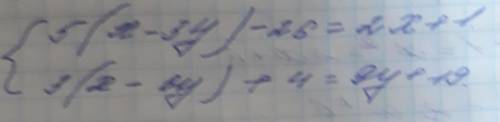 5(x-3y)-26=2x+1
3(x-6y)+4=9y+19